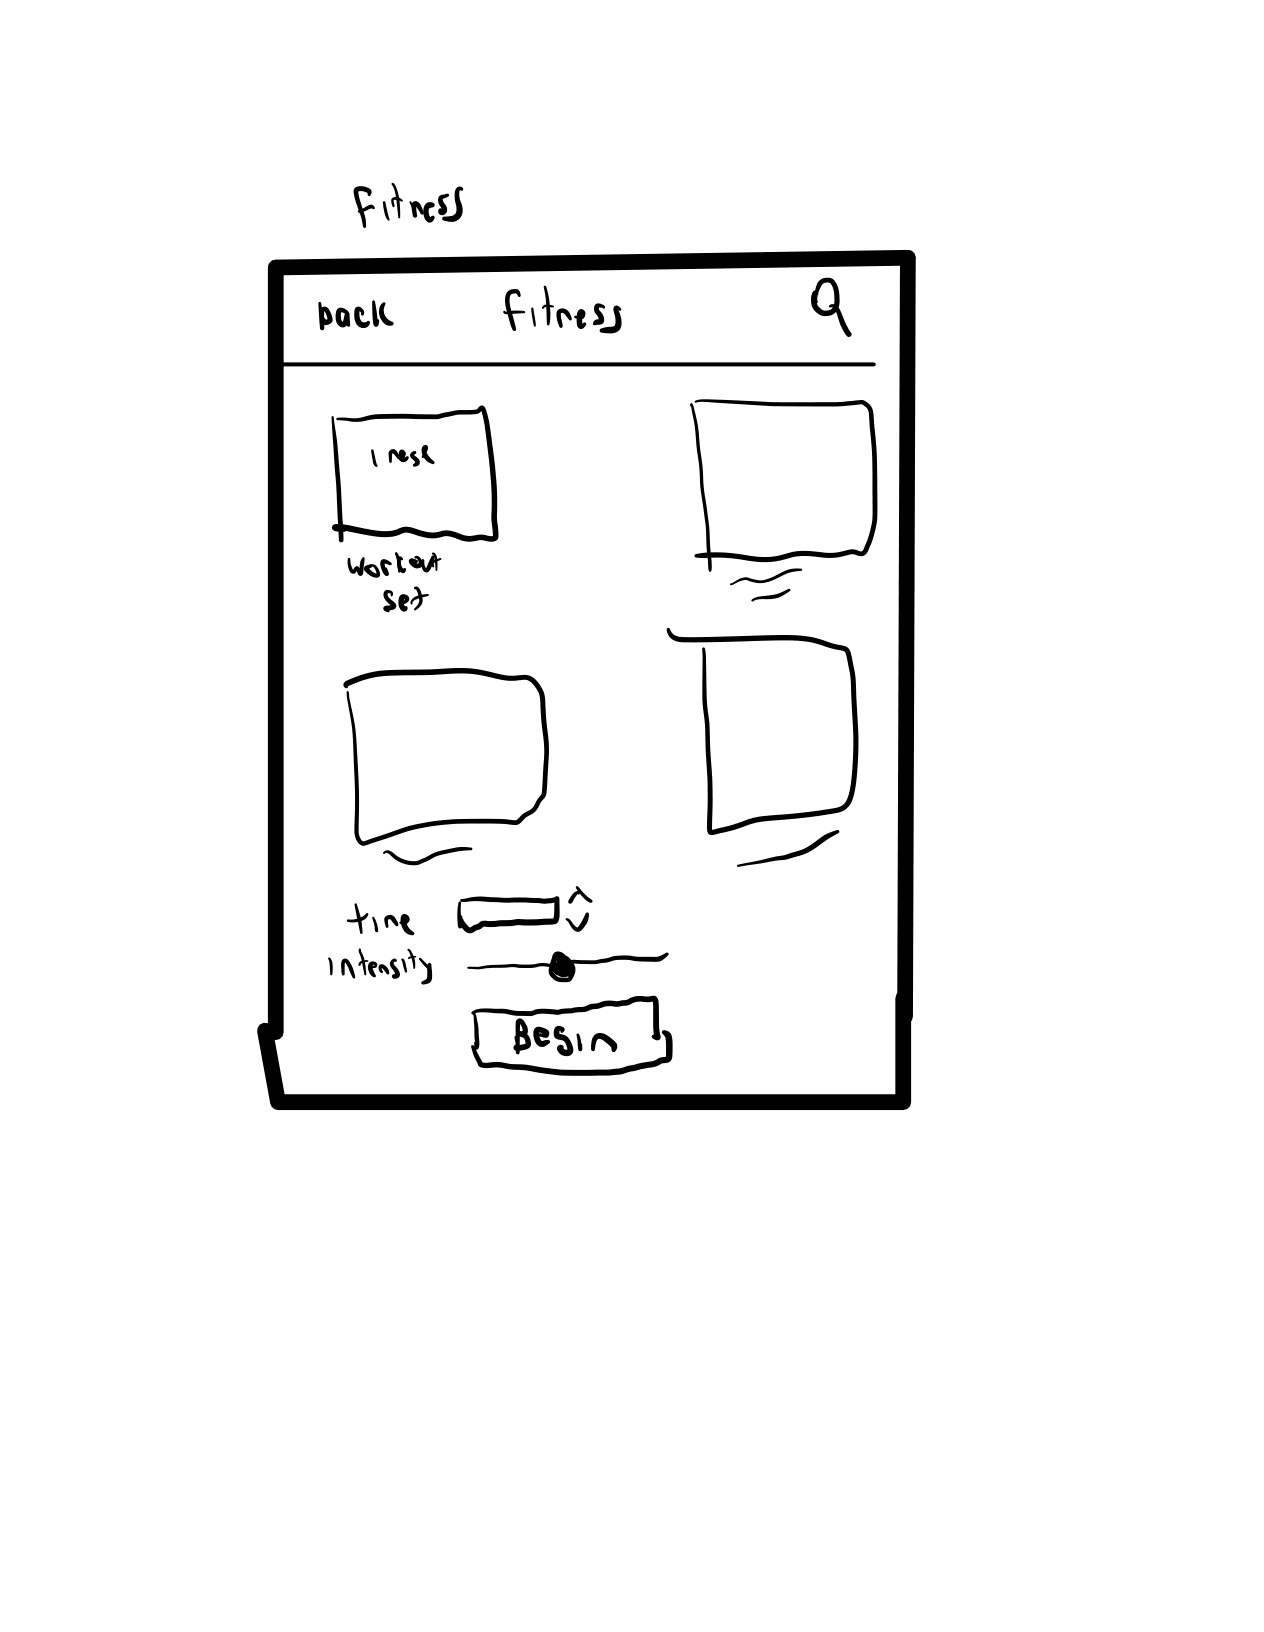 Fitness
back fitness
workout
set
time
intensity
Begin